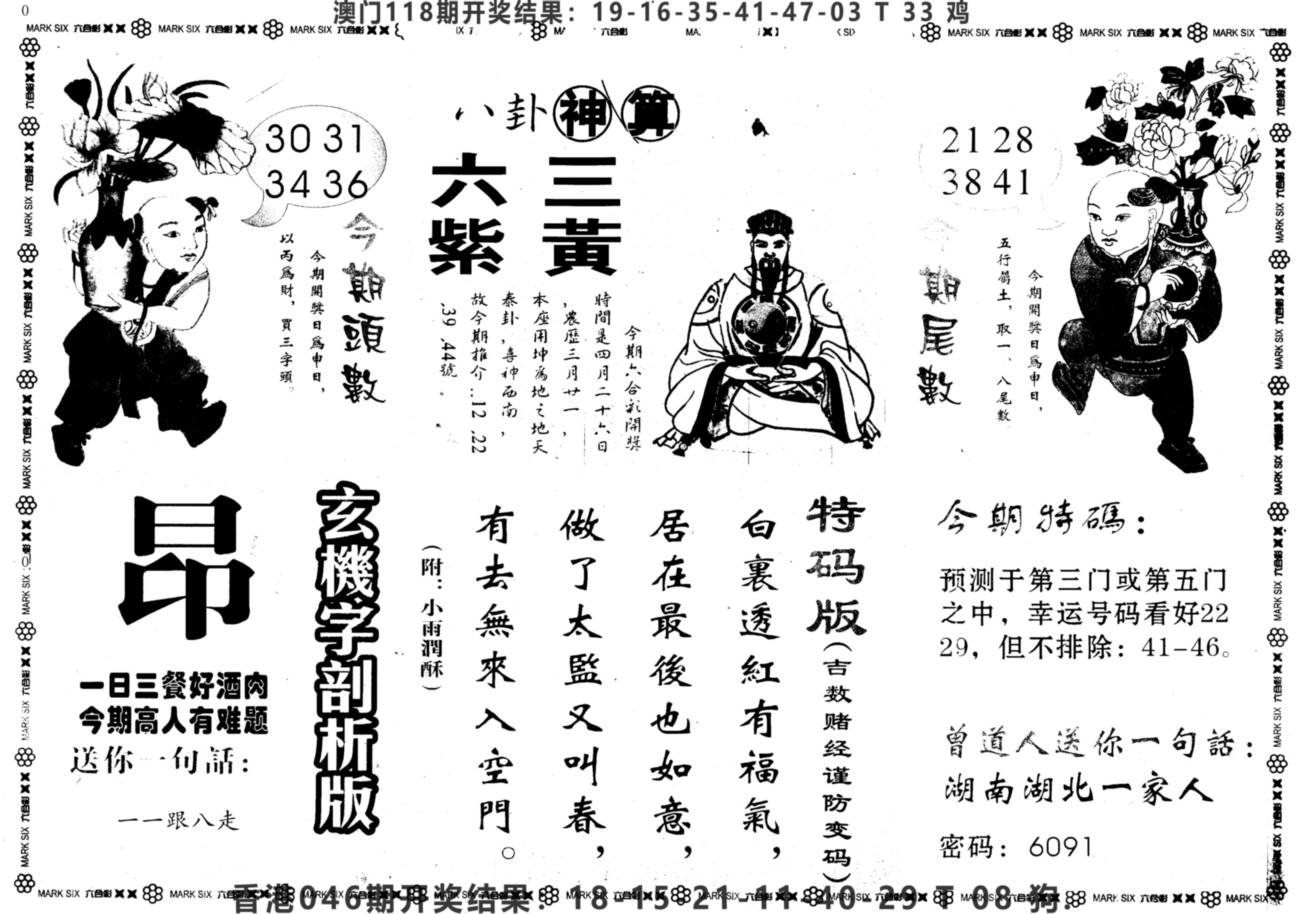 0
澳门118期开奖结果：19-16-35-41-47-03 T 33 鸡
MARK SIX 六合彩
八卦神算
六紫
三黃
30 31
34 36
今期頭數
今期開獎日爲申日，
以丙爲財，買三字頭。
今期六合彩開獎
時間是四月二十六日
，農歷三月廿一，
本座用坤爲地之地天
泰卦，喜神西南，
故今期推介..12 .22
.39 .44號
21 28
38 41
今期尾數
今期開獎日爲申日，
五行屬土，取一、八尾數
昂
一日三餐好酒肉
今期高人有难题
送你一句話：
一一跟八走
玄機字剖析版
特码版（吉数赌经谨防变码）
白裏透紅有福氣，
居在最後也如意，
做了太監又叫春，
有去無來入空門。
（附：小雨潤酥）
今期特碼：
预测于第三门或第五门
之中，幸运号码看好22
29，但不排除：41-46。
曾道人送你一句話：
湖南湖北一家人
密码：6091
香港046期开奖结果：18-15-21-11-40-29 T 08 狗